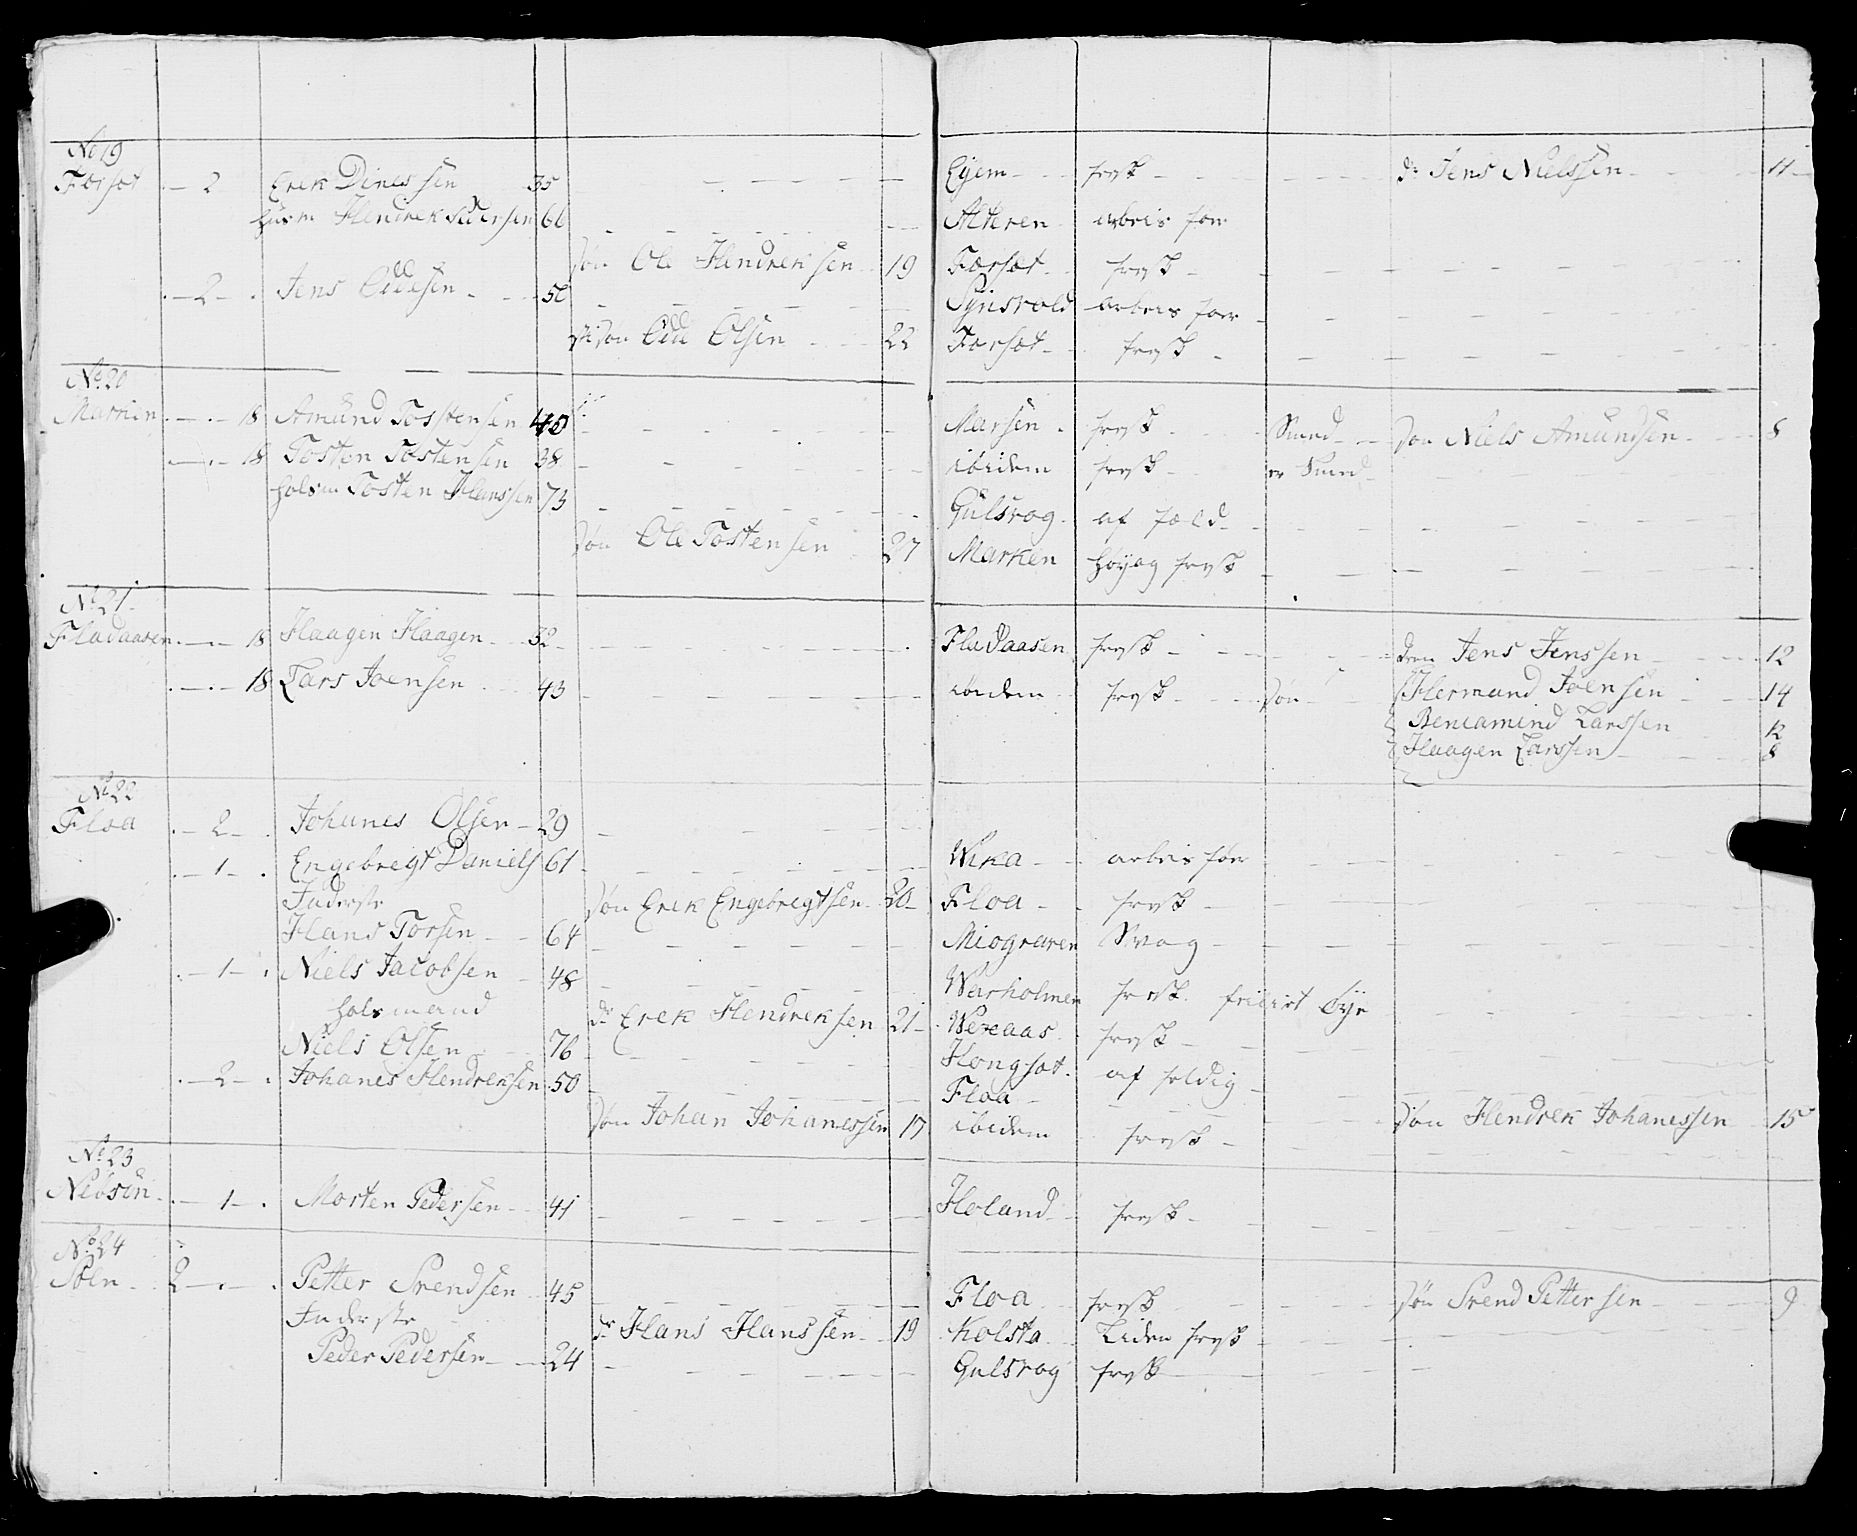 No 19
Forsot - 2 Erik Dinessen 35 Eyem frysk ds Jens Nielssen 11
Husm Hendrek Sidersen 66 Alteren arbeis før
søn Ole Hendreksen 19 Forsot frysk
- 2 - Jens Oddesen 56 Synsvold arbeis før
sti søn Odd Olsen 22 Forsot frysk
No 20
Marken 18 Amund Tostensen 40 Marsen frysk Smed søn Niels Amundsen 8
18 Tosten Tostensen 38 ibidem frysk er Smed
holsm Tosten Hanssen 73 Gulsvog af fæld
søn Ole Tostensen 27 Marken Høy og frysk
No 21
Fladaasen 18 Haagen Haagen 32 Fladaasen frysk søn Jens Jenssen 12
18 Lars Joensen 43 ibidem frysk søn Hermand Joensen 14
Beniamind Larssen 12
Haagen Larssen 8
No 22
Floa - 2 - Johanes Olsen 29
- 1 - Engebregt Daniels 61 Wika arbeis før
Inderste søn Erek Engebregtsen 20 Floa frysk
Hans Torsen 64 Miograven Svag
- 1 - Niels Jacobsen 48 Warholmen frysk
holsmand ds Erek Hendreksen 21 Wexaas frysk
Niels Olsen 76 Hongsot af foldig
- 2 - Johanes Hendreksen 50 Floa
søn Johan Johanessen 17 ibidem frysk søn Hendrek Johanessen 15
No 23
Neosen - 1 - Morten Pedersen 41 Holand frysk
No 24
Soln 2 Petter Svendsen 45 Floa frysk søn Svend Pettersen 9
Inderste ds Hans Hanssen 19 Kolsta Liden frysk
Peder Pedersen 24 Gulsvog frysk